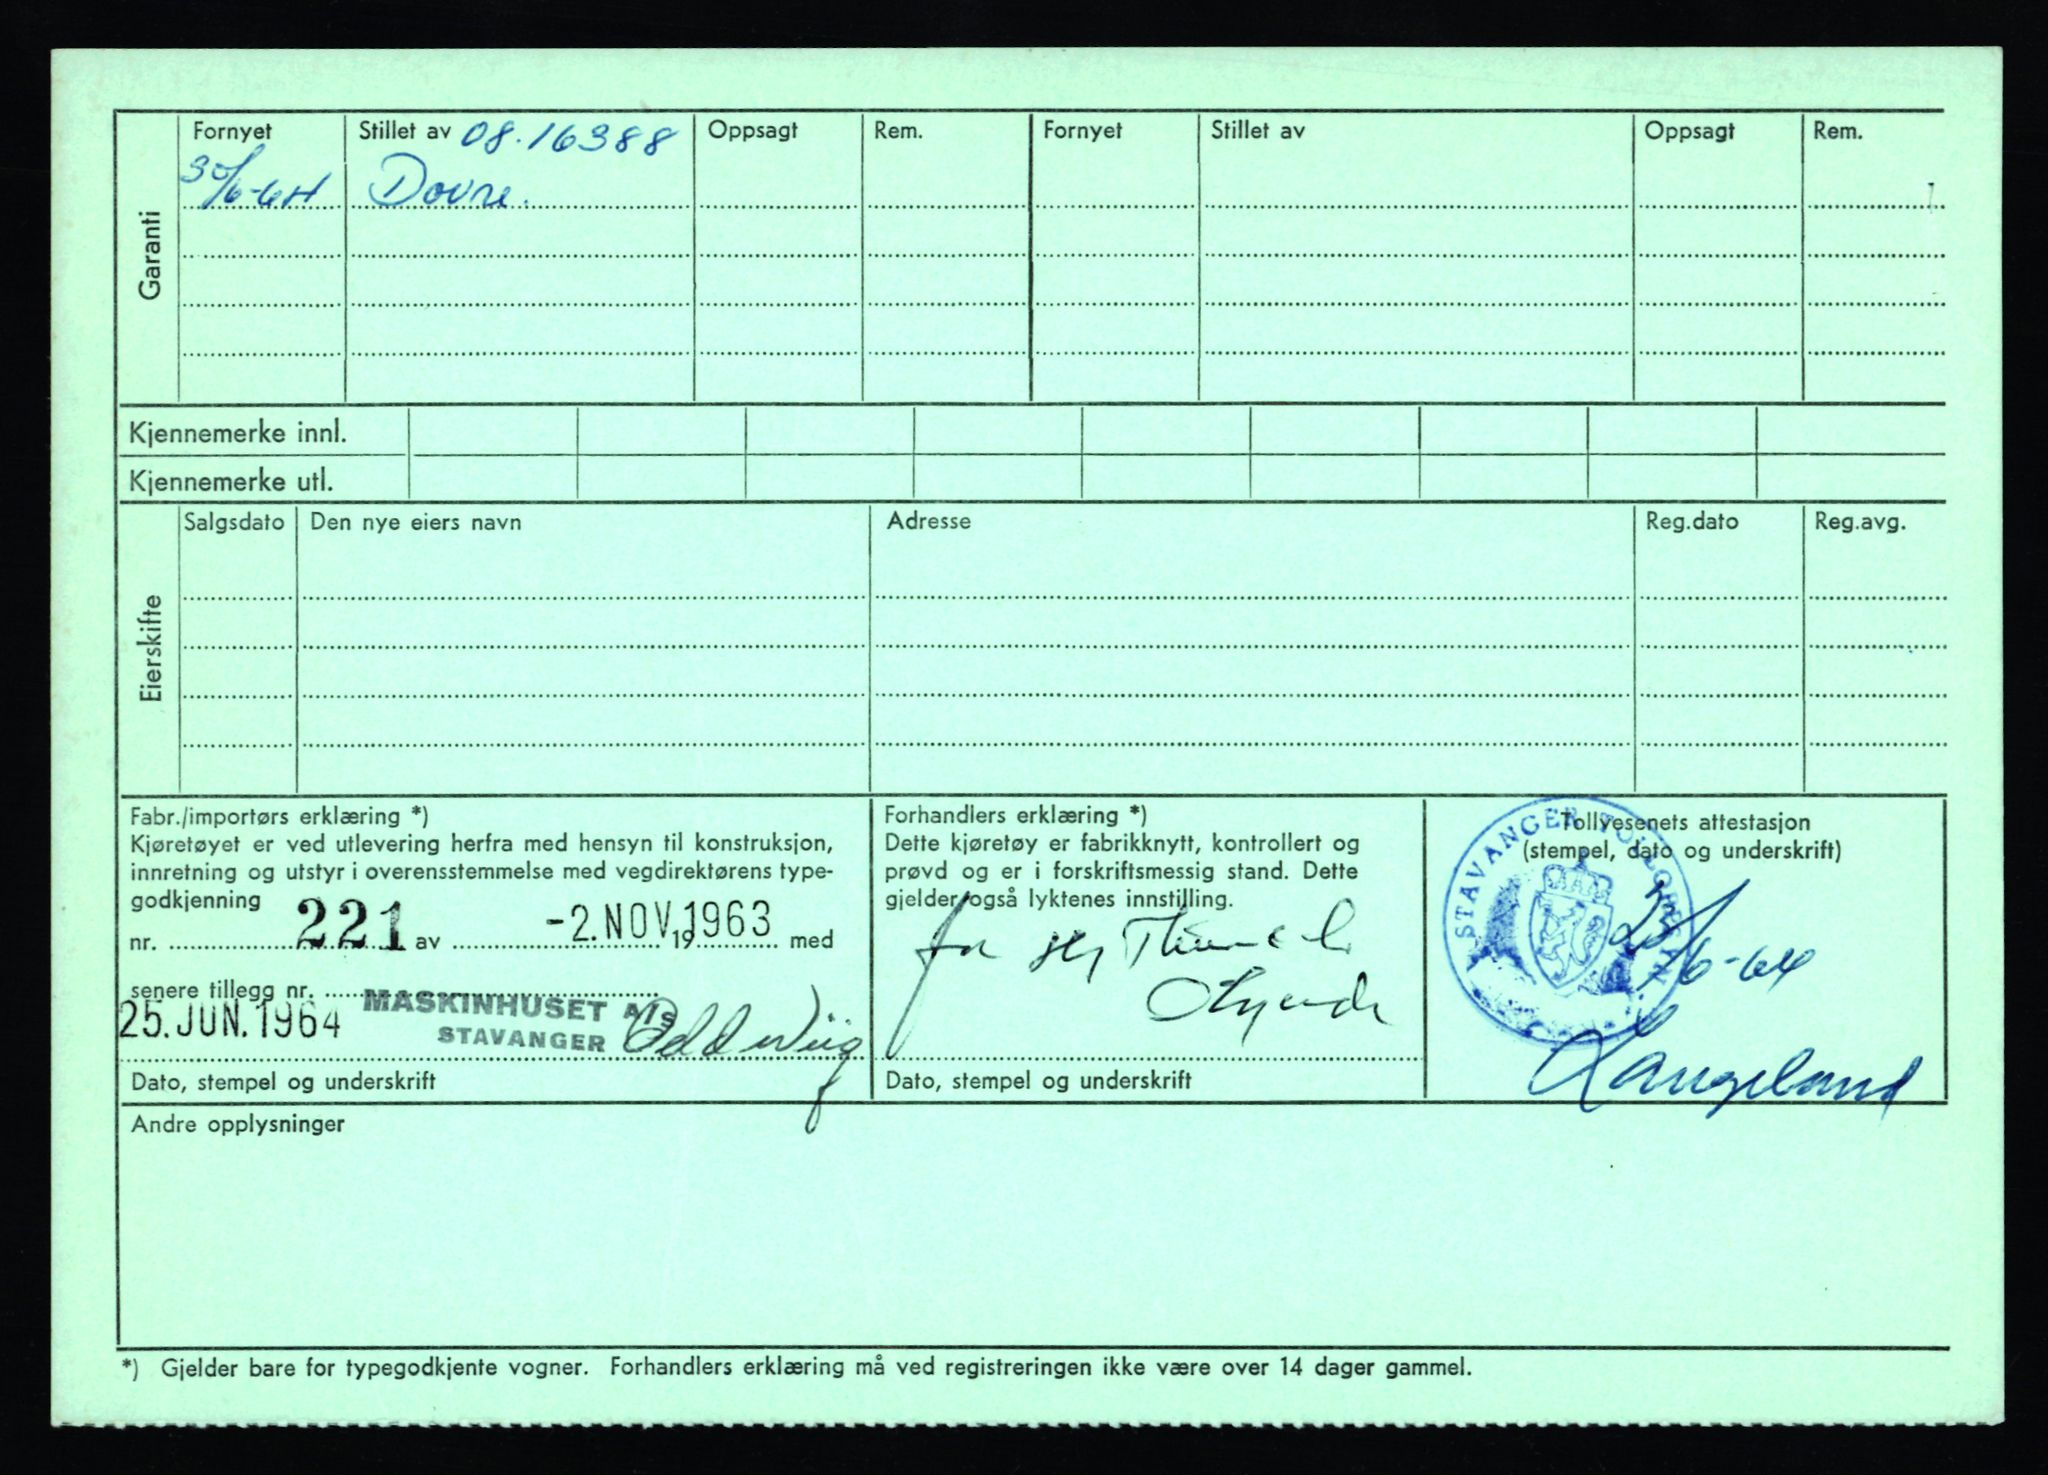 Garanti
Fornyet Stillet av 08.16388 Oppsagt Rem. Fornyet Stillet av Oppsagt Rem.
30/6-64 Dovre.
Kjennemerke innl.
Kjennemerke utl.
Eierskifte
Salgsdato Den nye eiers navn Adresse Reg.dato Reg.avg.
Fabr./importørs erklæring *)
Kjøretøyet er ved utlevering herfra med hensyn til konstruksjon,
innretning og utstyr i overensstemmelse med vegdirektørens type-
godkjenning
nr. 221 av -2. NOV. 1963 19 med
senere tillegg nr.
25. JUN. 1964 MASKINHUSET A/S
STAVANGER Odd Wiig
Dato, stempel og underskrift
Forhandlers erklæring *)
Dette kjøretøy er fabrikknytt, kontrollert og
prøvd og er i forskriftsmessig stand. Dette
gjelder også lyktenes innstilling.
for
Dato, stempel og underskrift
Tollvesenets attestasjon
(stempel, dato og underskrift)
STAVANGER
/6-64
Langeland
Andre opplysninger
*) Gjelder bare for typegodkjente vogner. Forhandlers erklæring må ved registreringen ikke være over 14 dager gammel.